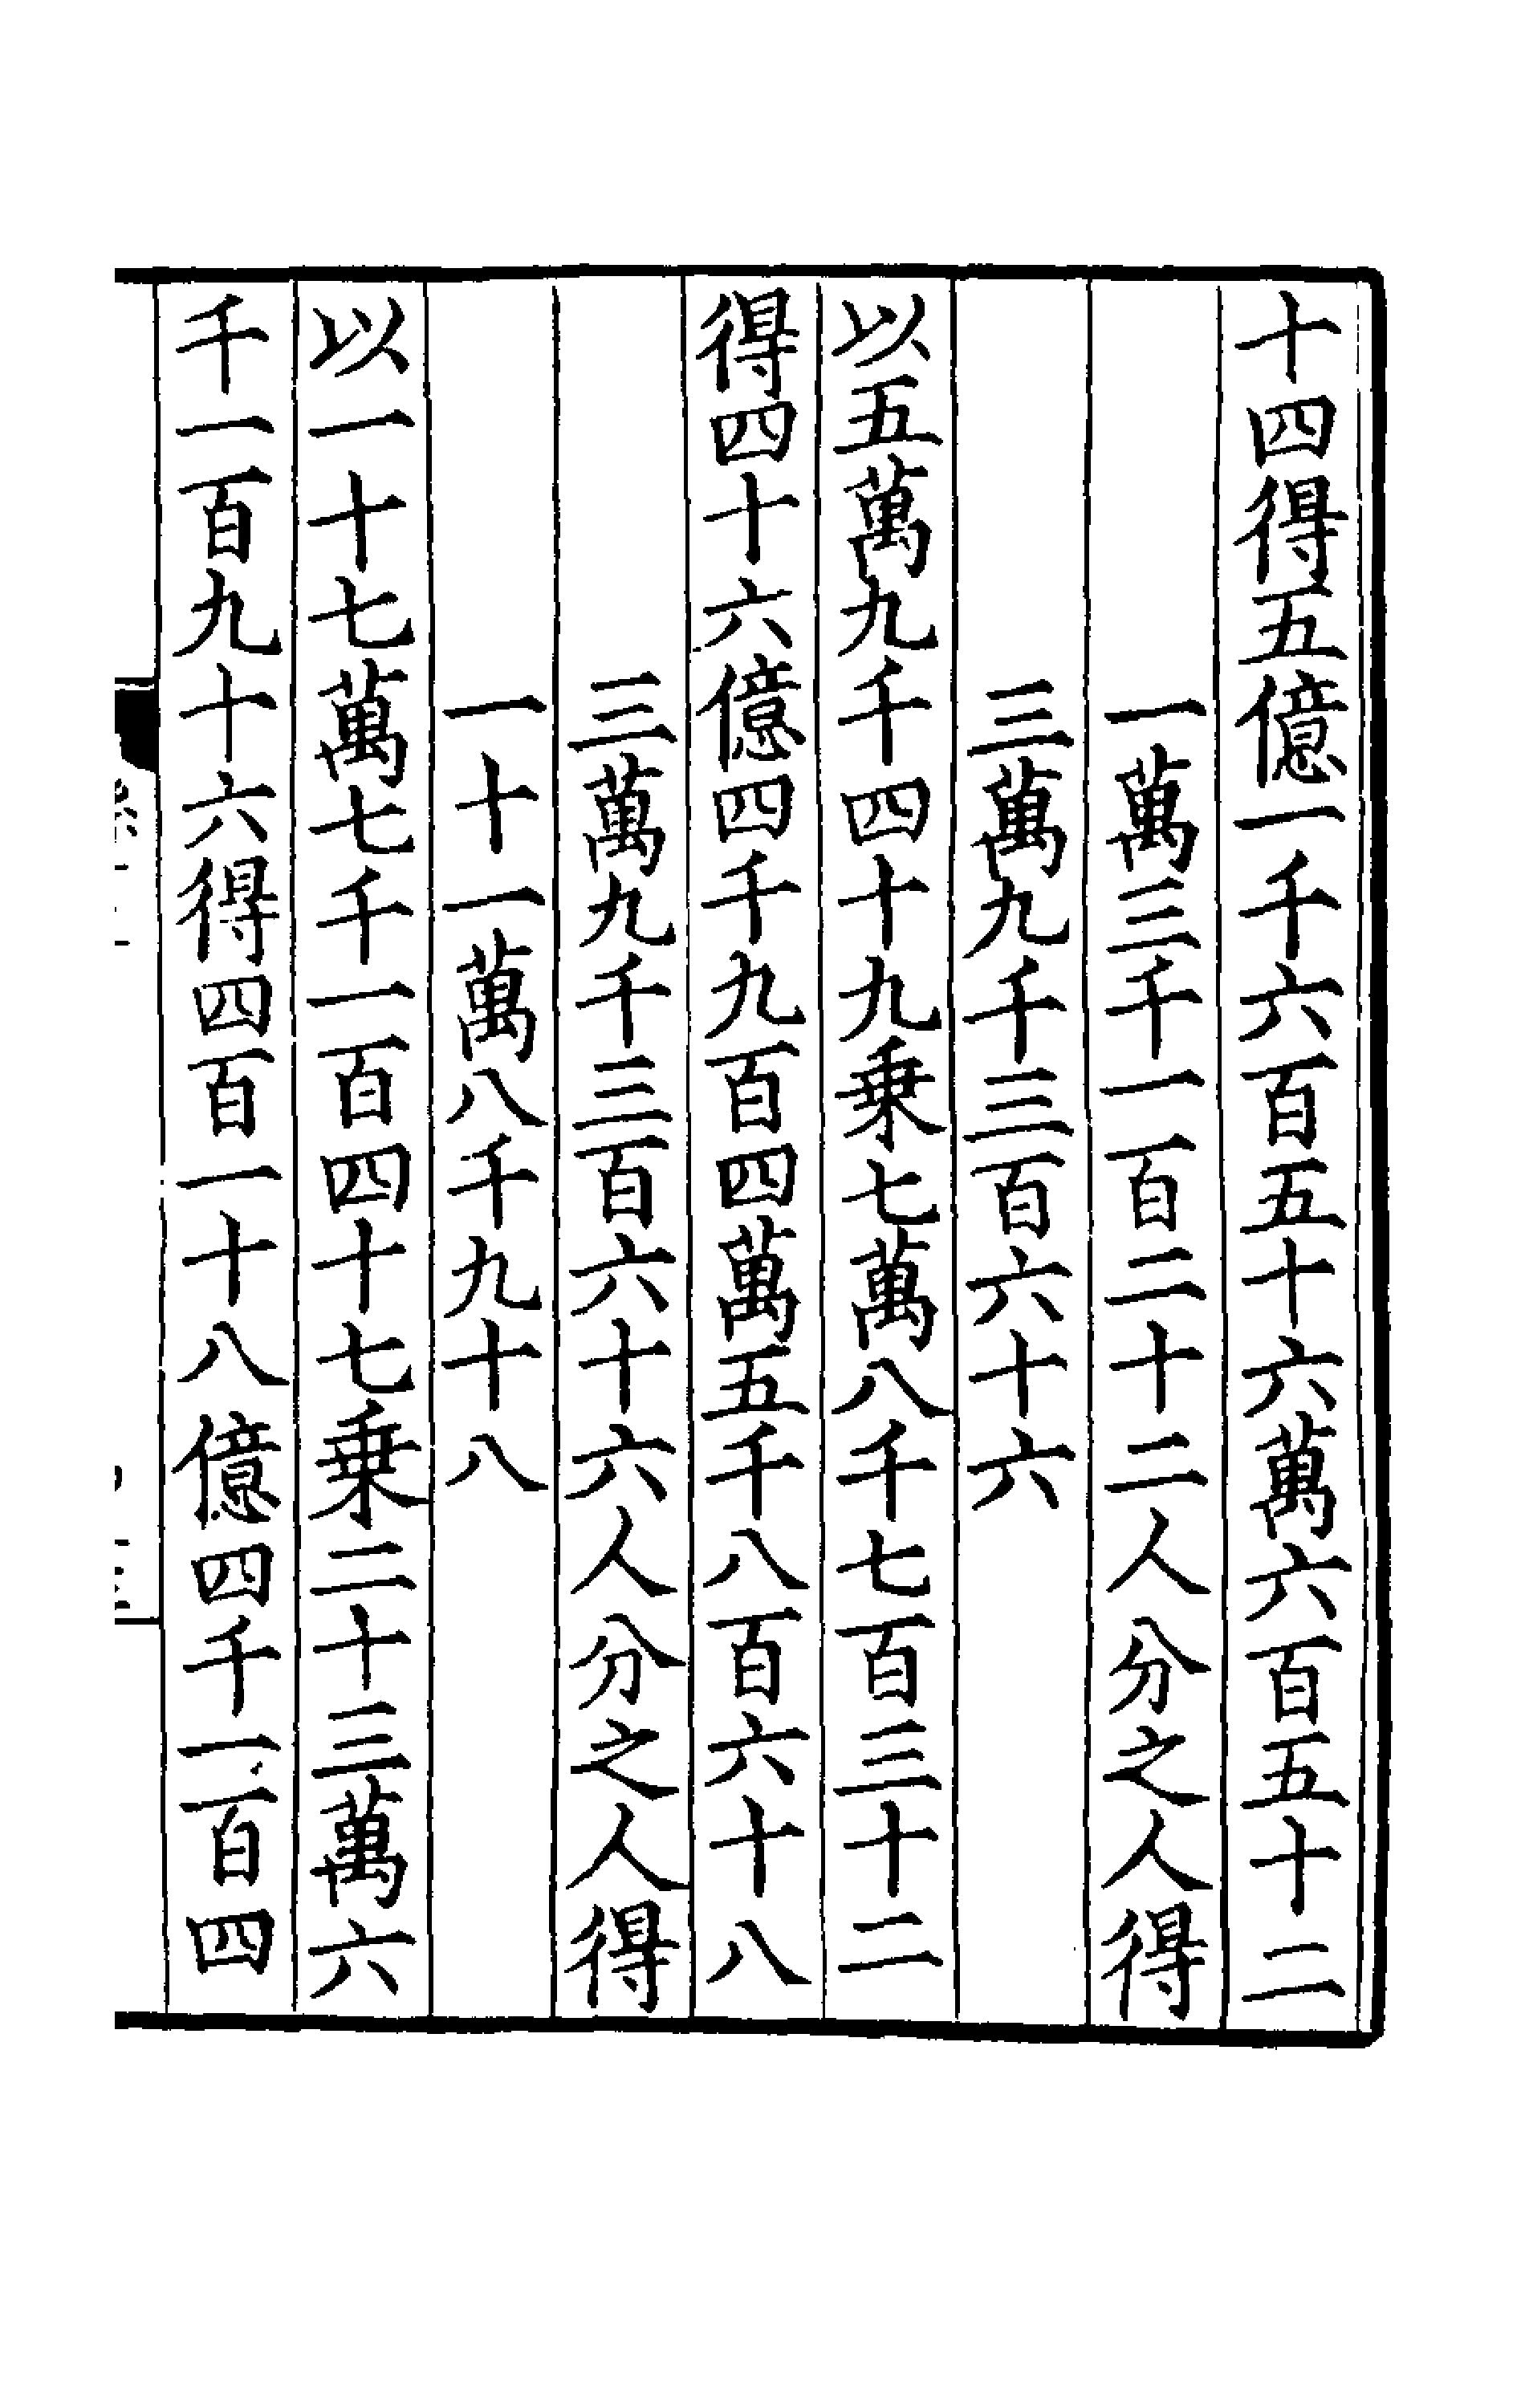 十四得五億一千六百五十六萬六百五十二
一萬三千一百二十二人分之人得
三萬九千三百六十六
以五萬九千四十九乗七萬八千七百三十二
得四十六億四千九百四萬五千八百六十八
三萬九千三百六十六人分之人得
一十一萬八千九十八
以一十七萬七千一百四十七乗二十三萬六
千一百九十六得四百一十八億四千一百四